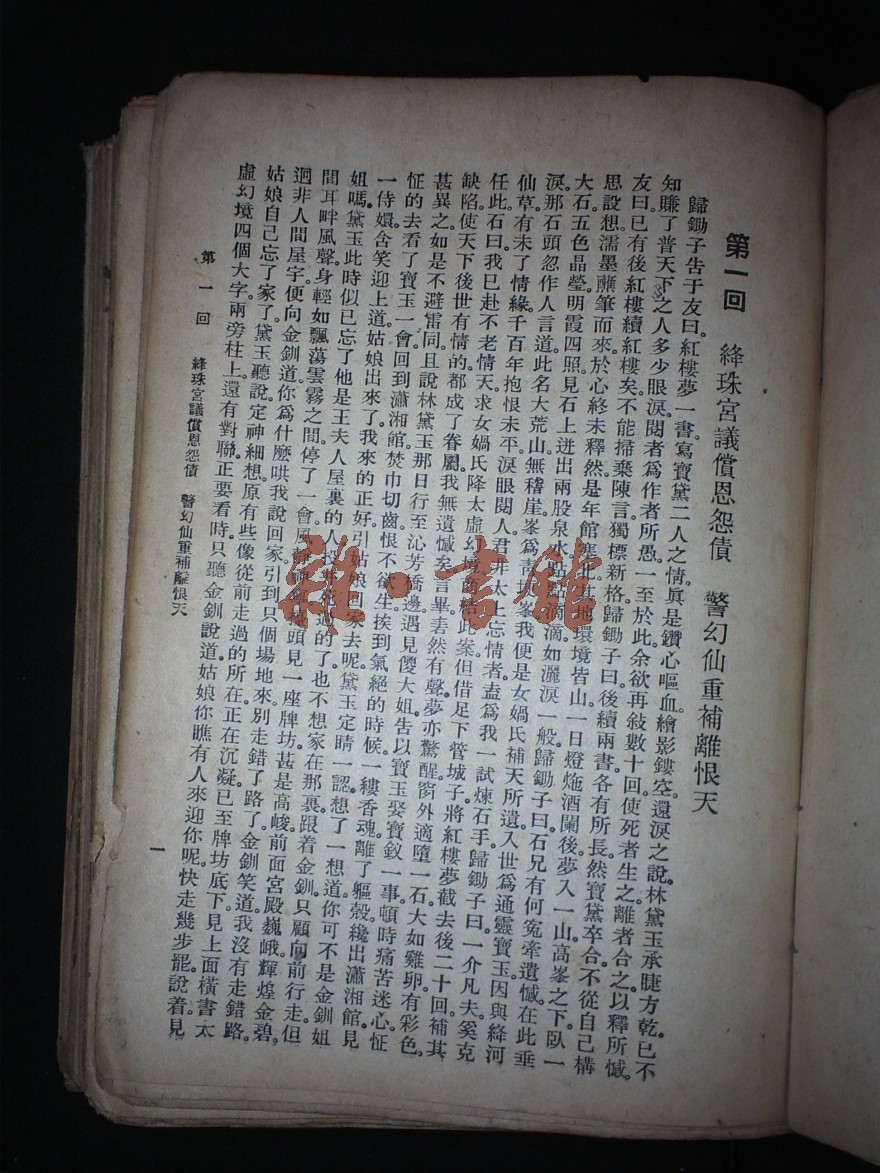 第一回　絳珠宮議償恩怨債　警幻仙重補離恨天
歸鋤子告于友曰。紅樓夢一書。寫寶黛二人之情。真是鑽心嘔血。繪影鏤空。還淚之說。林黛玉承睫方乾。已不
知賺了普天下之人多少眼淚。閱者爲作者所愚。一至於此。余欲再敍數十回。使死者生之。離者合之。以釋所憾。
友曰。已有後紅樓續紅樓矣。不能掃棄陳言。獨標新格。歸鋤子曰。後續兩書。各有所長。然寶黛卒合。不從自己構
思設想。濡墨蘸筆而來。於心終未釋然。是年館塞北。其地環境皆山。一日燈炧酒闌後。夢入一山。高峯之下。臥一
大石。五色晶瑩。明霞四照。見石上迸出兩股泉水。點點滴滴。如灑淚一般。歸鋤子曰。石兄有何冤牽遺憾。在此垂
淚。那石頭忽作人言道。此名大荒山無稽崖。峯爲青埂峯。我便是女媧氏補天所遺。入世爲通靈寶玉。因與絳河
仙草。有未了情緣。千百年抱恨未平。淚眼閱人。君非太上忘情者。盍爲我一試煉石手。歸鋤子曰。一介凡夫。奚克
任此。石曰。我已赴不老情天。求女媧氏降太虛幻境。結此案。但借足下管城子。將紅樓夢截去後二十回。補其
缺陷。使天下後世有情的。都成了眷屬。我無遺憾矣。言畢。砉然有聲。夢亦驚醒。窗外適墮一石。大如雞卵。有彩色。
甚異之。如是不避雷同。且說林黛玉那日行至沁芳橋邊。遇見儍大姐。告以寶玉娶寶釵一事。頓時痛苦迷心。怔
怔的去看了寶玉一會。回到瀟湘館。焚巾切齒。恨不欲生。挨到氣絕的時候。一縷香魂。離了軀殼。纔出瀟湘館。見
一侍嬛。含笑迎上道。姑娘出來了。我來的正好。引姑娘回家去呢。黛玉定睛一認。想了一想道。你可不是金釧姐
姐嗎。黛玉此時似已忘了他是王夫人屋裏的人。投井死過的了。也不想家在那裏。跟着金釧。只顧向前行走。但
聞耳畔風聲。身輕如飄蕩雲霧之間。停了一會。風頭見一座牌坊。甚是高峻。前面宮殿巍峨。輝煌金碧。
迥非人間屋宇。便向金釧道。你爲什麼哄我說回家。引到只個場地來。別走錯了路了。金釧笑道。我沒有走錯路。
姑娘自己忘了家了。黛玉聽說。定神細想。原有些像從前走過的所在。正在沉凝。已至牌坊底下。見上面橫書太
虛幻境四個大字。兩旁柱上。還有對聯。正要看時。只聽金釧說道。姑娘你瞧有人來迎你呢。快走幾步罷。說着見
第一回　絳珠宮議償恩怨債　警幻仙重補離恨天
一
雜·書館